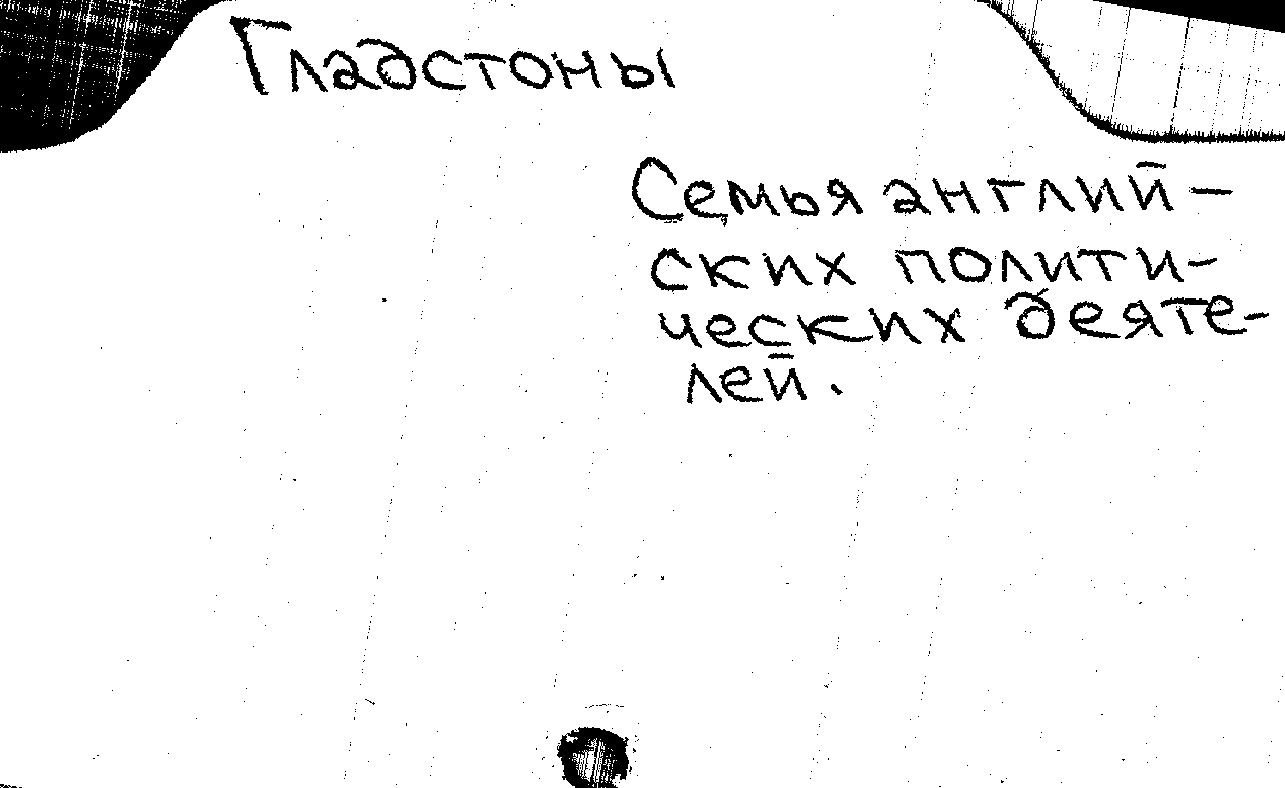 Гладстоны
Семья англий-
ских полити-
ческих деяте-
лей.